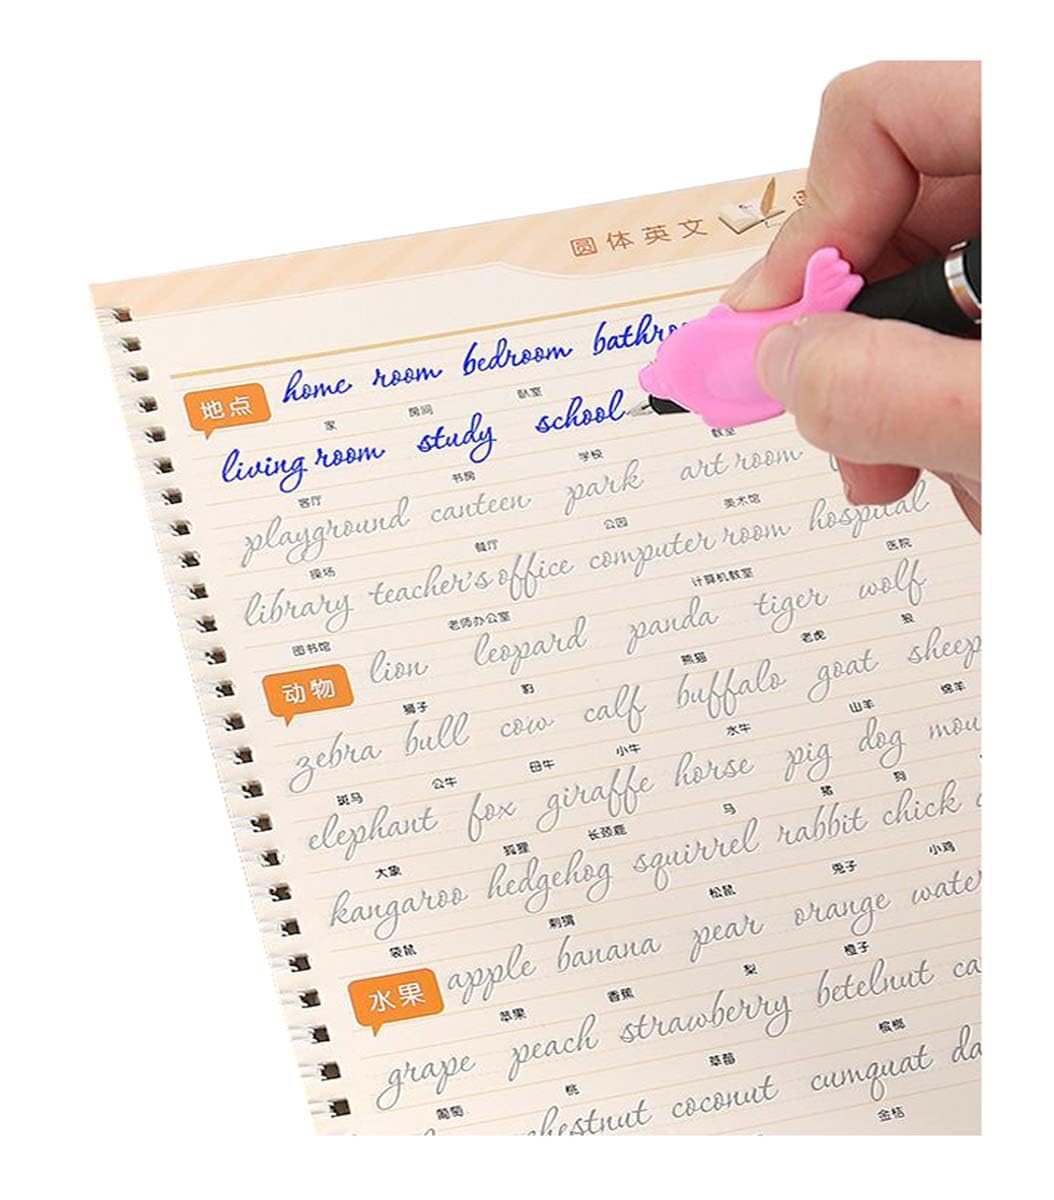 圆体英文
地点 home room bedroom
家 房间 卧室
living room study school
客厅 书房 学校 教室
playground canteen park art room
操场 餐厅 公园 美术馆
library teacher's office computer room hospital
图书馆 老师办公室 计算机教室 医院
动物 lion leopard panda tiger wolf
狮子 豹 熊猫 老虎 狼
zebra bull cow calf buffalo goat sheep
斑马 公牛 母牛 小牛 水牛 山羊 绵羊
elephant fox giraffe horse pig dog
大象 狐狸 长颈鹿 马 猪 狗
kangaroo hedgehog squirrel rabbit chick
袋鼠 刺猬 松鼠 兔子 小鸡
水果 apple banana pear orange
苹果 香蕉 梨 橙子
grape peach strawberry betelnut
葡萄 桃 草莓 槟榔
coconut cumquat
金桔